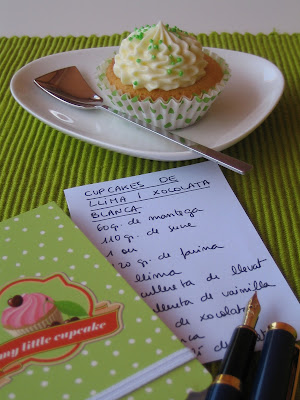 CUPCAKES DE
LLIMA I XOCOLATA
BLANCA
60g. de mantega
110 g. de sucre
1 ou
20 g. de farina
llima
cullereta de llevat
lleta de vainilla
de xocolata
my little cupcake